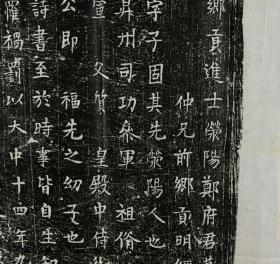 鄉貢進士滎陽鄭府君墓
仲兄前鄉貢明經
字子固其先滎陽人也
昇州司功叅軍 祖脩
宣 父賀 皇殿中侍
公即 福先之幼子也
詩書至於時事皆自生知
罹禍罰以大中十四年